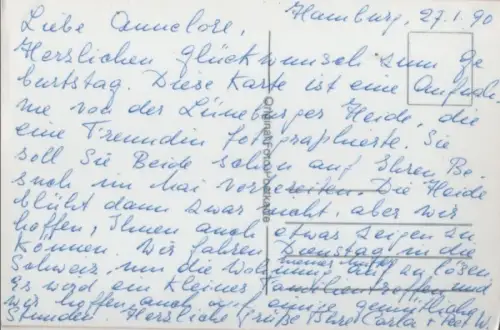 Hamburg, 27.1.90
Liebe Annelore,
Herzlichen Glückwunsch zum Ge
burtstag. Diese Karte ist eine Aufnah
me von der Lüneburger Heide, die
eine Freundin fotografierte. Sie
soll Sie Beide schon auf Ihren Be-
such im Mai vorbereiten. Die Heide
blüht dann zwar nicht, aber wir
hoffen, Ihnen auch etwas zeigen zu
können. Wir fahren Dienstag in die
Schweiz, um die Wohnung auf zu lösen
Es wird ein kleines Familientreffen und
wir hoffen auch auf einige gemütliche
Stunden. Herzliche Grüße Ihre Carla